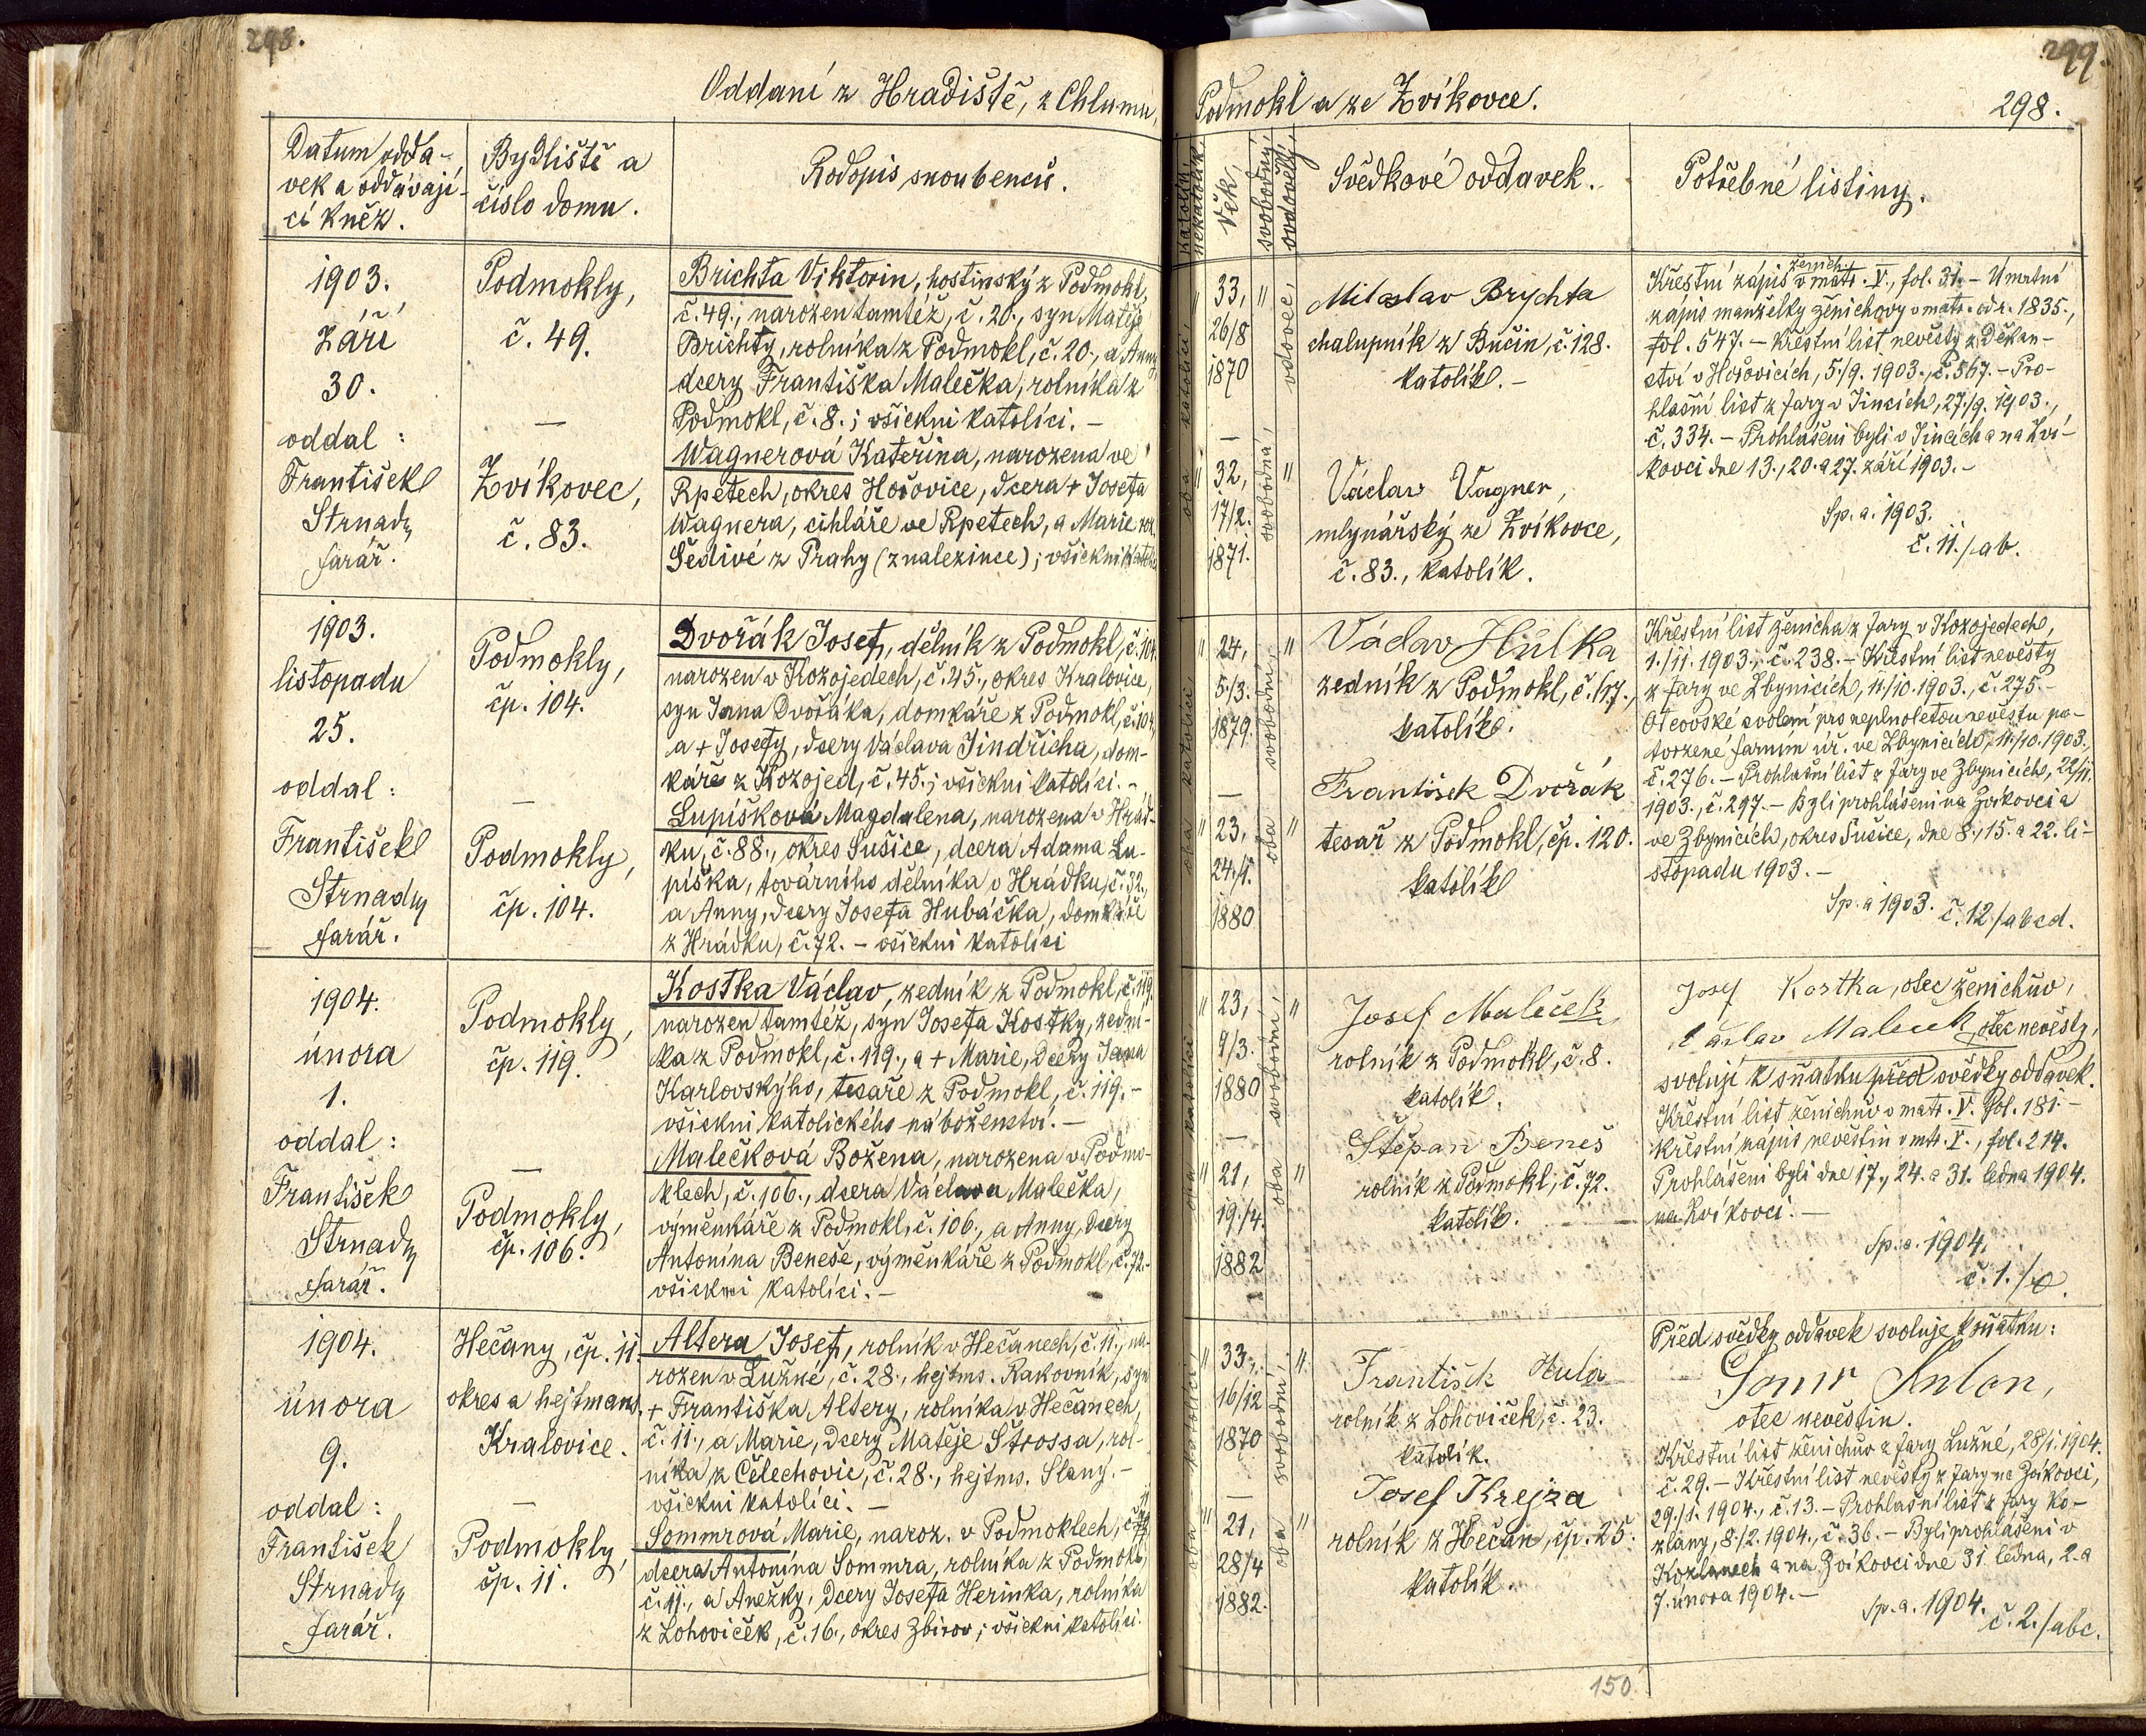 298.
Oddaní z Hradiště, z Chlumu,
Datum odda-
vek a oddávají-
cí kněz.
Bydliště a
číslo domu.
Rodopis snoubenců.
1903.
Září
30.
oddal:
František
Strnad,
farář.
Podmokly,
č. 49.
—
Zvíkovec,
č. 83.
Brichta Viktorin, hostinský z Podmokl,
č. 49., narozen tamtéž, č. 20., syn Matěje
Brichty, rolníka z Podmokl, č. 20., a Anny
dcery Františka Malečka, rolníka z
Podmokl, č. 8.; všickni katolíci. —
Wagnerová Kateřina, narozena ve
Rpetech, okres Hořovice, dcera + Josefa
Wagnera, cihláře ve Rpetech, a Marie roz.
Šedivé z Prahy (z nalezince); všickni katolíci
1903.
listopadu
25.
oddal:
František
Strnad,
farář.
Podmokly,
čp. 104.
—
Podmokly,
čp. 104.
Dvořák Josef, dělník z Podmokl, č. 104.
narozen v Kožojedech, č. 45., okres Kralovice,
syn Jana Dvořáka, domkáře z Podmokl, č. 104,
a + Josefy, dcery Václava Jindřicha, dom-
káře z Kozojed, č. 45.; všickni katolíci. —
Lupíšková Magdalena, narozena v Hrád-
ku, č. 88., okres Sušice, dcera Adama Lu-
píška, továrního dělníka v Hrádku, č. 32.,
a Anny, dcery Josefa Hubáčka, domkáře
z Hrádku, č. 72. — všickni katolíci
1904.
února
1.
oddal:
František
Strnad,
farář.
Podmokly,
čp. 119.
—
Podmokly,
čp. 106.
Kostka Václav, zedník z Podmokl, č. 119.
narozen tamtéž, syn Josefa Kostky, zední-
ka z Podmokl, č. 119., a + Marie, dcery Jana
Karlovskýho, tesaře z Podmokl, č. 119. —
všickni katolického náboženství. —
Malečková Božena, narozena v Podmo-
klech, č. 106., dcera Václava Malečka,
výměnkáře z Podmokl, č. 106., a Anny, dcery
Antonína Beneše, výměnkáře z Podmokl, č. 72.
všickni katolíci. —
1904.
února
9.
oddal:
František
Strnad,
farář.
Hečany, čp. 11.
okres a hejtmans.
Kralovice.
—
Podmokly,
čp. 11.
Altera Josef, rolník v Hečanech, č. 11., na-
rozen v Lužné, č. 28., hejtms. Rakovník, syn
+ Františka Altery, rolníka v Hečanech,
č. 11., a Marie, dcery Matěje Štrossa, rol-
níka z Čelechovic, č. 28., hejtms. Slaný. —
všickni katolíci. —
Sommrová Marie, naroz. v Podmoklech,
dcera Antonína Sommra, rolníka z Podmokl,
č. 11., a Anežky, dcery Josefa Herinka, rolníka
z Lohoviček, č. 16., okres Zbirov; všickni katolíci.
299.
Podmokl a ze Zvíkovce.
298.
katolík
nekatolík
Věk
svobodný
ovdovělý
Svědkové oddavek.
Potřebné listiny.
oba katolíci
33,
26/8
1870
—
32,
17/2.
1871.
vdovec,
svobodná,
Miloslav Brychta
chalupník z Bučin, č. 128.
katolík. —
Václav Vagner,
mlynářský ze Zvíkovce,
č. 83., katolík.
Křestní zápis ženich. v matr. V., fol. 31. — Umrtní
zápis manželky ženichovy v matr. od r. 1835.,
fol. 547. — Křestní list nevěsty z Děkan-
ství v Hořovicích, 5./9. 1903., č. 567. — Pro-
hlašní list z fary v Jincích, 27./9. 1903.,
č. 334. — Prohlášeni byli v Jincích a na Zví-
kovci dne 13., 20. a 27. září 1903. —
Sp. a. 1903.
č. 11./ab.
oba katolíci
24,
5./3.
1879.
—
23,
24./1.
1880
oba svobodní,
Václav Hůlka
zedník z Podmokl, č. 117.,
katolík.
František Dvořák
tesař z Podmokl, čp. 120.
katolík
Křestní list ženicha z fary v Kozojedech,
1./11. 1903., č. 238. — Křestní list nevěsty
z fary ve Zbynicích, 11./10. 1903., č. 275. —
Otcovské svolení pro neplnoletou nevěstu po-
tvrzené farním úř. ve Zbynicích, 11./10. 1903.,
č. 276. — Prohlašní list z fary ve Zbynicích, 22/11.
1903., č. 297. — Byli prohlášeni na Zvíkovci a
ve Zbynicích, okres Sušice, dne 8., 15. a 22. li-
stopadu 1903. —
Sp. a 1903. č. 12/abcd.
oba katolíci
23,
9/3.
1880
—
21,
19./4.
1882
oba svobodní,
Josef Maleček
rolník z Podmokl, č. 8.
katolík.
Štěpán Beneš
rolník z Podmokl, č. 72.
katolík.
Josef Kostka, otec ženichův,
Václav Maleček, otec nevěsty,
svolují k sňatku před svědky oddavek.
Křestní list ženichův v matr. V. fol. 181. —
Křestní zápis nevěstin v mtr. V., fol. 214.
Prohlášeni byli dne 17., 24. a 31. ledna 1904.
na Zvíkovci. —
Sp. a. 1904.
č. 1./
oba katolíci
33,
16/12
1870
—
21,
28/4
1882.
oba svobodní
František Hula
rolník z Lohoviček, č. 23.
katolík.
Josef Krejza
rolník z Hečan, čp. 25.
katolík.
Před svědky oddavek svoluje k sňatku:
Somr Anton,
otec nevěstin.
Křestní list ženichův z fary Lužné, 28/1. 1904.
č. 29. — Křestní list nevěsty z fary na Zvíkovci,
29./1. 1904., č. 13. — Prohlašní list z fary Ko-
žlany, 8./2. 1904., č. 36. — Byli prohlášeni v
Kožlanech a na Zvíkovci dne 31. ledna, 2. a
7. února 1904. —
Sp. a. 1904.
č. 2./abc.
150